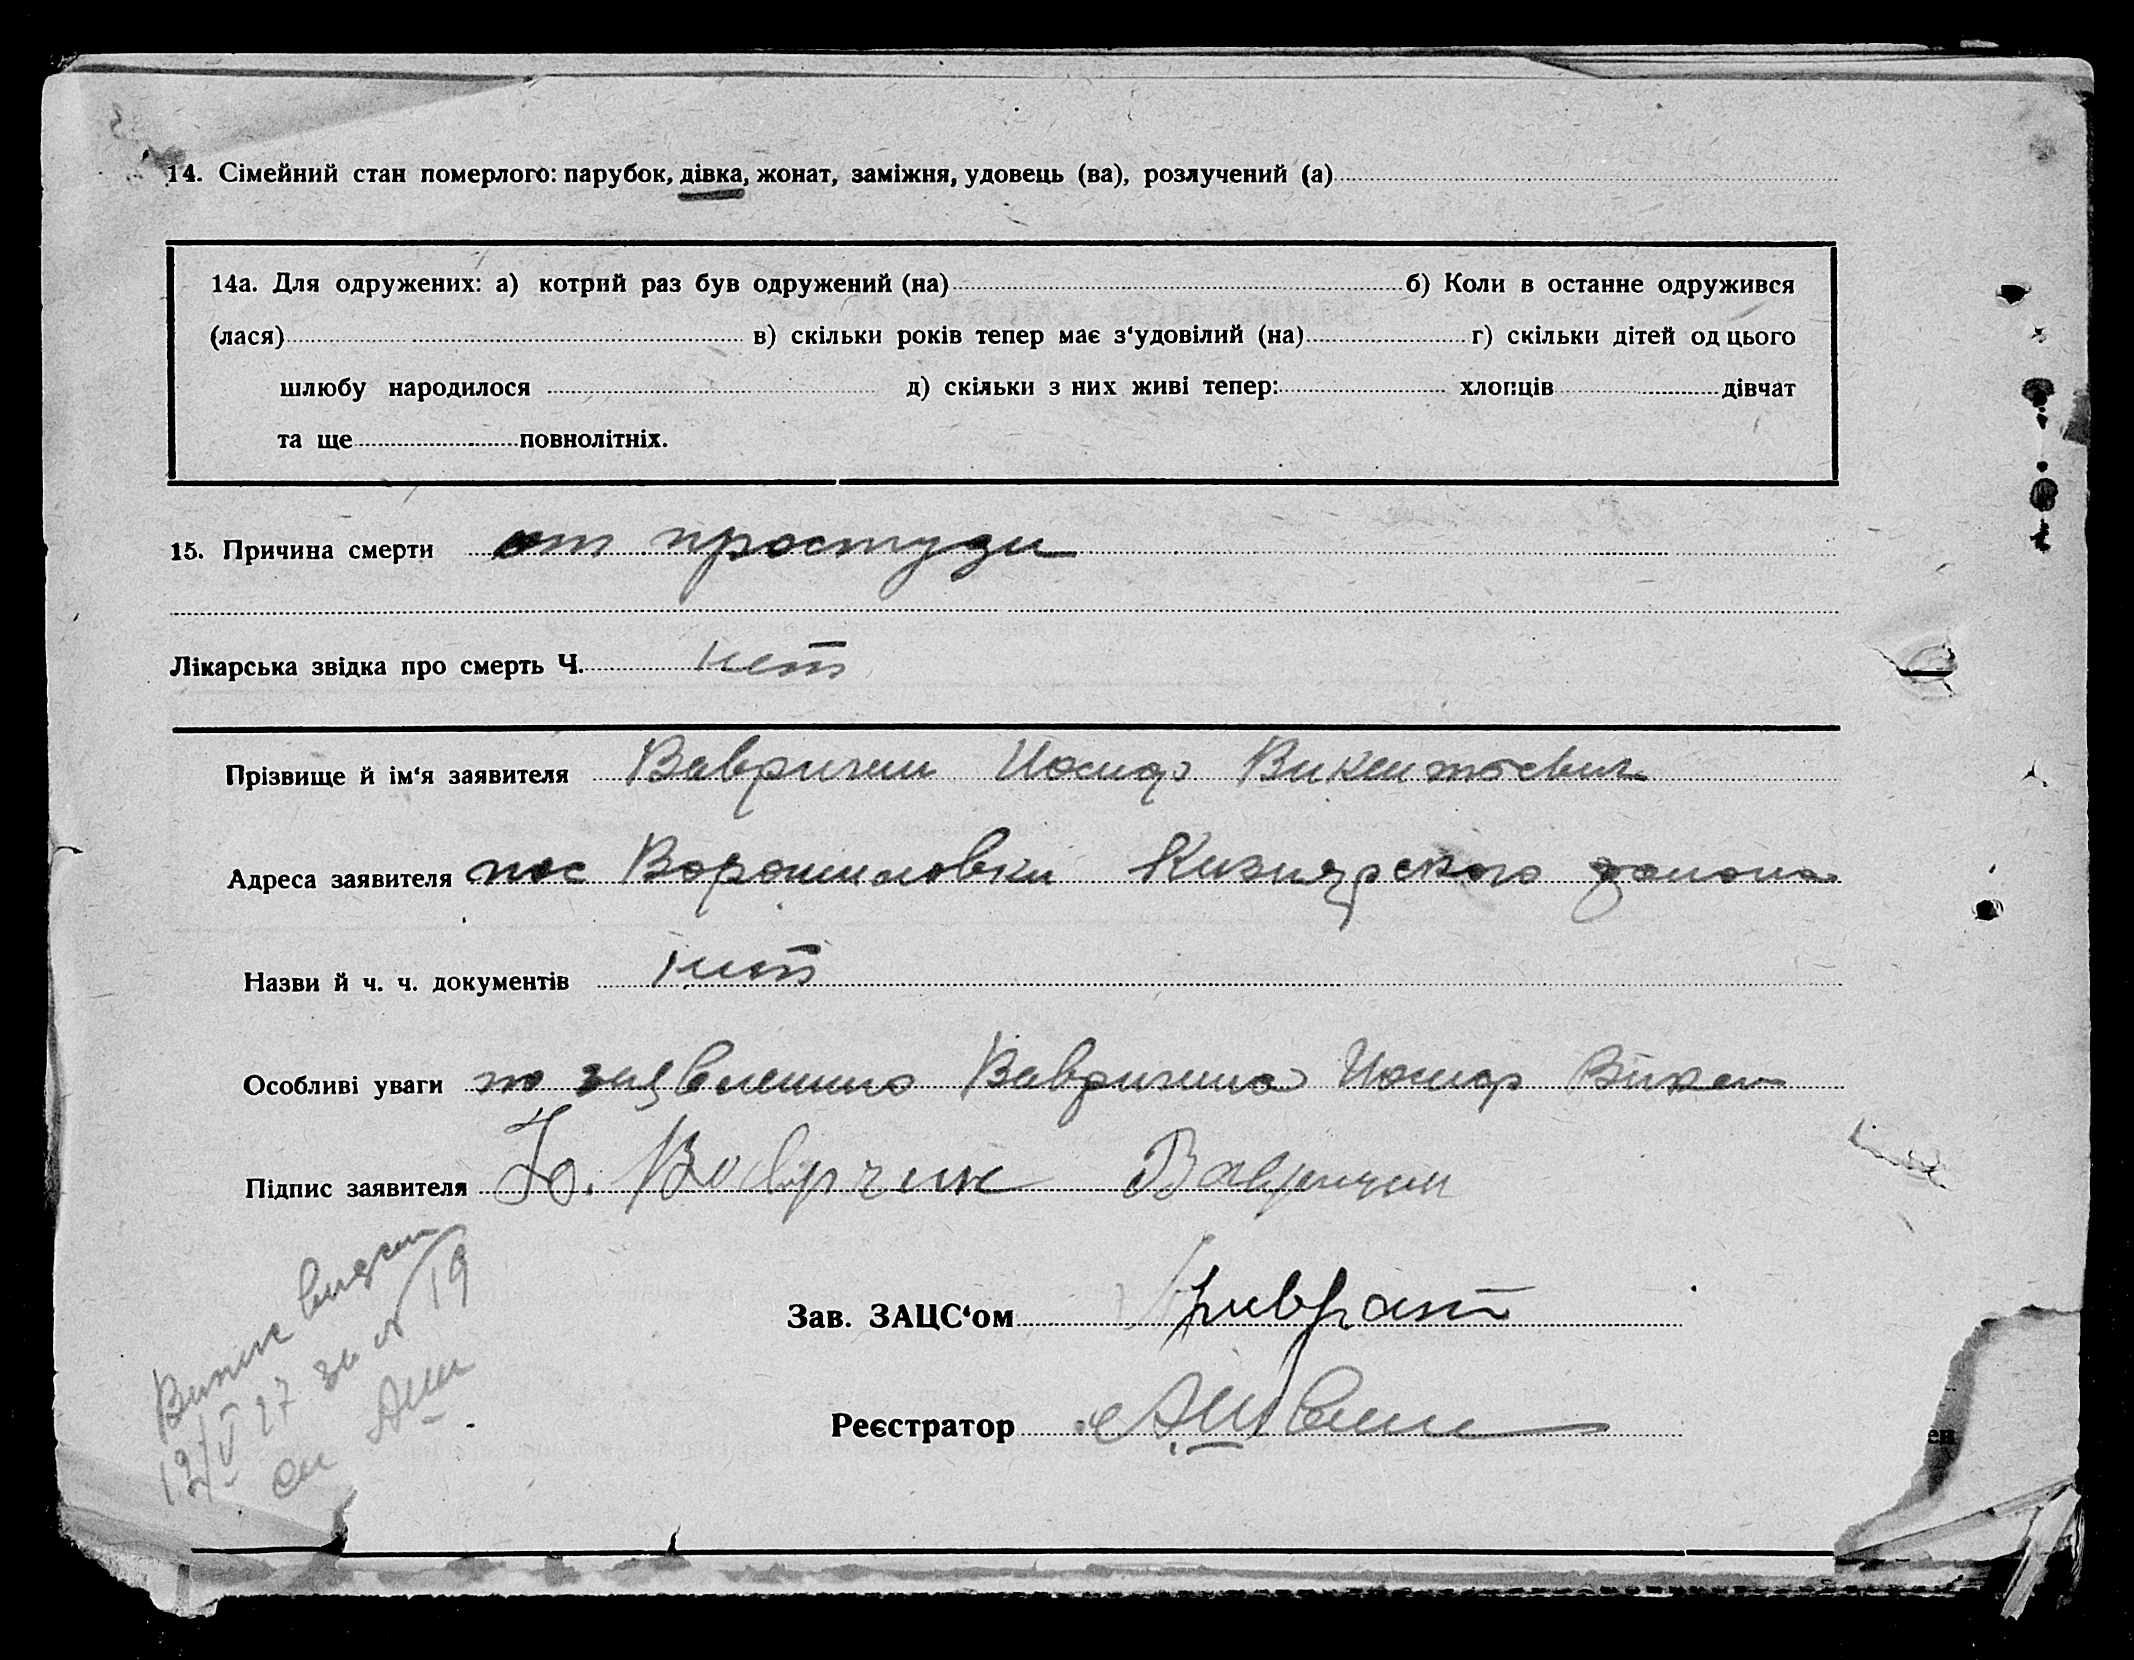 14. Сімейний стан померлого: парубок, дівка, жонат, заміжня, удовець (ва), розлучений (а)
14а. Для одружених: а) котрий раз був одружений (на) б) Коли в останне одружився
(лася) в) скільки років тепер має з‘удовілий (на) г) скільки дітей од цього
шлюбу народилося д) скільки з них живі тепер: хлопців дівчат
та ще повнолітніх.
15. Причина смерти от простуди
Лікарська звідка про смерть Ч. нет
Прізвище й ім‘я заявителя Вавричин Иосиф Викентьевич
Адреса заявителя пос Ворошиловки Кизиярского района
Назви й ч. ч. документів нет
Особливі уваги по заявлению Вавричина Иосиф Викен
Підпис заявителя Вавричин
Зав. ЗАЦС‘ом
Реєстратор
12/V 27 за № 19
ен